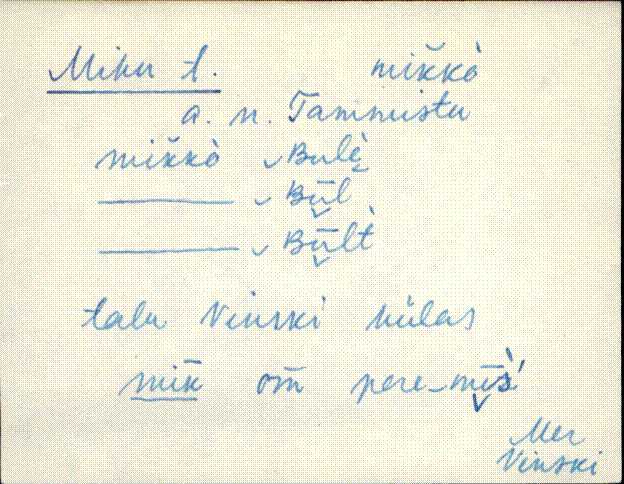 Mihu t. mik̆kò
a. n. Tammistu
mik̆kò ᴗBulè
——— ᴗBū̬l
——— ᴗBū̬lt̀
talu Vinski külas
mik̄ om̄ pere-mī̬s̀'
Mer
Vinski